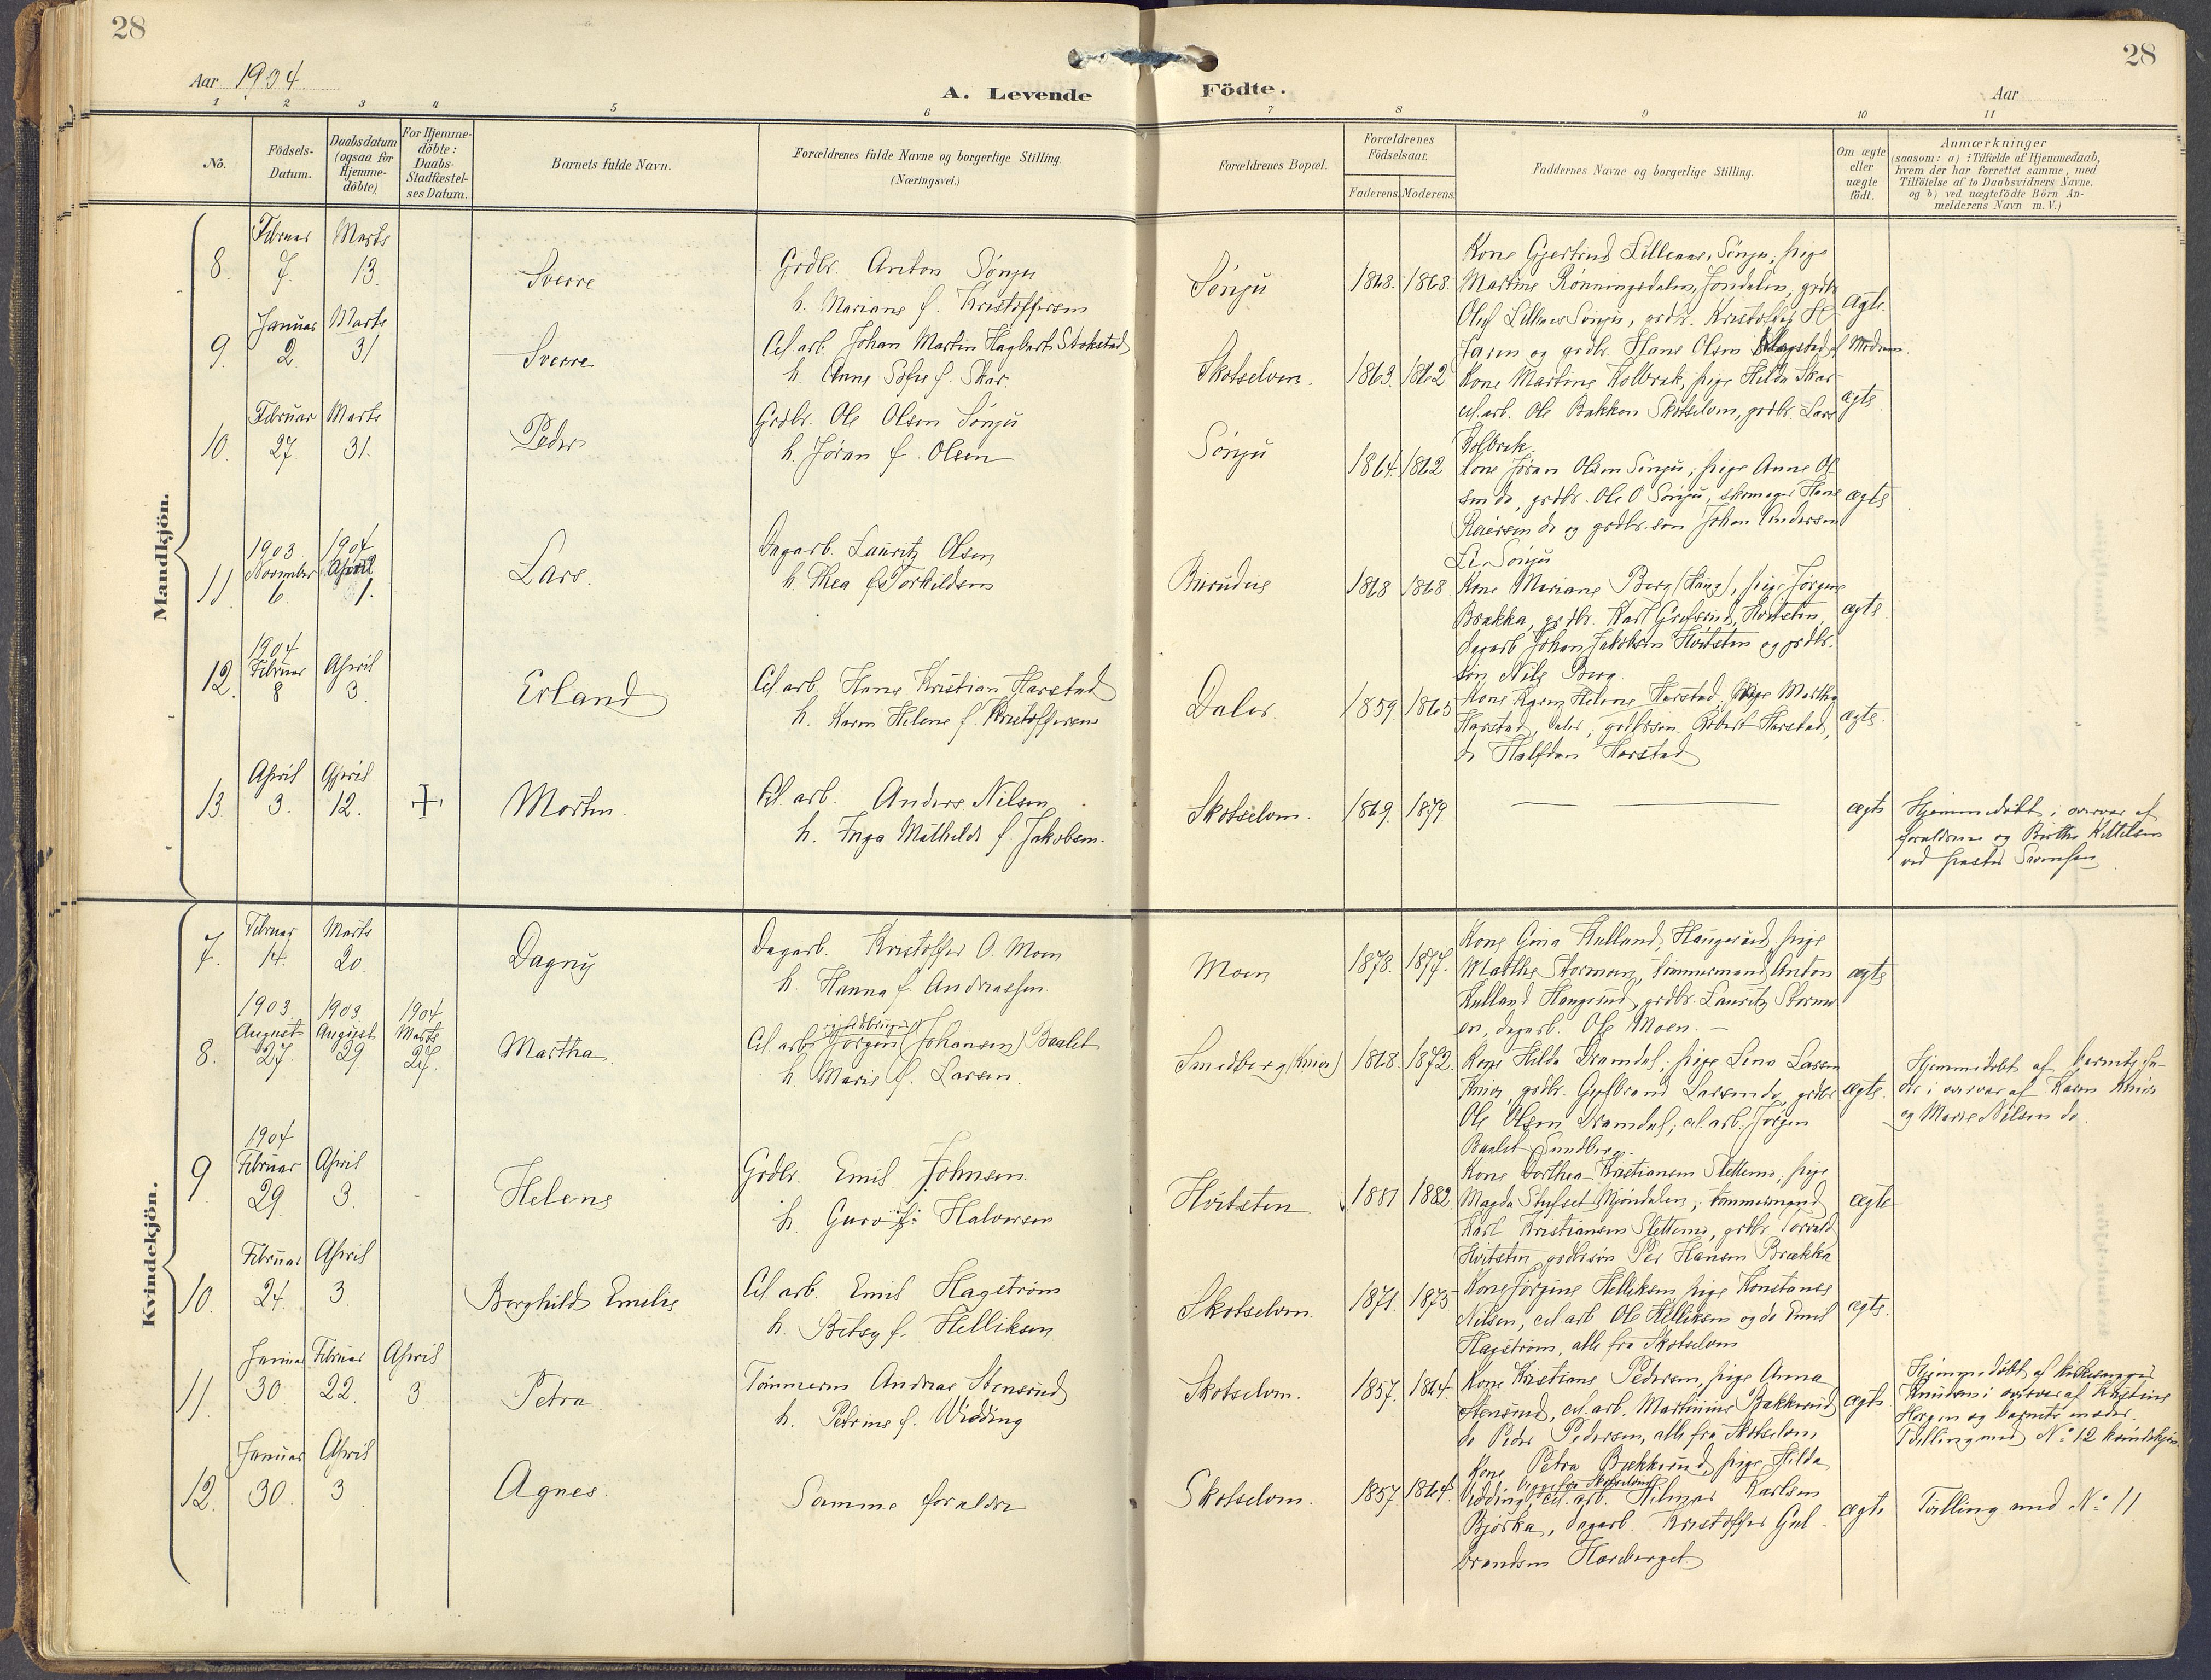 28
28
Aar 1904.
A. Levende Födte.
Aar
1 2 3 4 5 6 7 8 9 10 11
No.
Födsels-Datum.
Daabsdatum (ogsaa for Hjemme-döbte)
For Hjemme-döbte: Daabs-Stadfæstel-ses Datum.
Barnets fulde Navn.
Forældrenes fulde Navne og borgerlige Stilling.
(Næringsvei.)
Forældrenes Bopæl.
Forældrenes Födselsaar.
Faderens. Moderens.
Faddernes Navne og borgerlige Stilling.
Om ægte eller uægte födt.
Anmærkninger
(saasom: a) i Tilfælde af Hjemmedaab,
hvem der har forrettet samme, med
Tilföielse af to Daabsvidners Navne.
og b) ved uægtefödte Börn An-
melderens Navn m. V.)
Mandkjön.
8. Februar 7. Marts 13. Sverre
Grdbr. Anton Sønju
h. Mariane f. Kristoffersen
Sønju 1868. 1868.
Kone Gjertrud Lillemoe, Sønju, pige
Martine Rønningsdalen, Jondalen, grdbr
Oluf Sønju, grdbr. Kristoffer
og grdbr. Hans Olsen
ægte.
9. Januar 2. Marts 31 Sverre
Cel. arb. Johan Martin Hagbart Stokstad
h. Anne Sofie f. Skar.
Skotselven. 1863. 1862
Kone Martine Kolbræk, pige Hilda Skar
cel. arb. Ole Bakken Skotselven, grdbr. Lars
Kolbræk
ægte
10. Februar 27. Marts 31. Peder
Grdbr. Ole Olsen Sønju
h. Jøran f. Olsen
Sønju 1864. 1862
Kone Jøran Olsen Sønju, pige Anne Ol
sen do, grdbr. Ole O Sønju, skomager Hans
do og grdbr. søn Johan Andersen
Li, Sønju
ægte
11. 1903 November 6. 1904 April 1. Lars.
Dagarb. Lauritz Olsen
h. Thea f. Torkildsen
1868 1868
Kone Mariane Berg (Haug), pige Jørgine
Brækka, grdbr. Karl Hvitsten,
dagarb Johan Jakobsen Hvitsten og grdbr.
søn Nils Berg.
ægte
12. 1904 Februar 8 April 3. Erland
Cel. arb. Hans Kristian Harstad
h. Karen Helene f. Kristoffersen
Daler. 1859. 1865
Kone Karen Helene Harstad, pige Martha
Harstad, Daler, grdbrsøn Robert Harstad,
do Halfdan Harstad
ægte.
13. April 3. April 12. + Morten.
Cel. arb. Anders Nilsen
h. Inga Mathilde f. Jakobsen.
Skotselven. 1869. 1879
ægte
Hjemmedøbt i overvær af
forældrene og Berthe Kittilsen
ved prester Svensen
Kvindekjön.
7. Februar 14. Marts 20. Dagny
Dagarb. Kristoffer O. Moen
h. Hanna f. Andreassen.
Moen 1878. 1877.
Kone Gina Hulland, Haugerud, pige
Marthe Stormoen, tømmermand Anton
Hulland Haugerud, grdbr. Lauritz Stormo
en, dagarb. Ole Moen. –
ægte
8. 1903 August 27. 1903 August 29. 1904 Marts 27. Martha
Cel. arb. Jørgen (Johansen) Baalet
h. Marie f. Larsen.
Smedberg (Knive) 1868. 1872.
Kone Hilda Dramdal, pige Lina Larsen
Knive, grdbr. Gulbrand Larsen do, grdbr
Ole Olsen Dramdal; cel. arb. Jørgen
Baalet Smedberg.
ægte.
Hjemmedøbt af barnets fa-
der i overvær af Karen Knive
og Marie Nilsen do.
9. 1904 Februar 29. April 3. Helene
Grdbr. Emil Johnsen
h. Guro f. Halvorsen
Hvitsten 1881 1882.
Kone Dorthea Kristiansen Slettemo, pige
Magda Mjøndalen, tømmermand
Karl Kristiansen Slettemo, grdbr. Torvald
Hvitsten, grdbrsøn Per Hansen Brækka
ægte
10. Februar 24. April 3. Borghild Emilie
Cel. arb. Emil Hagstrøm
h. Betsy f. Helliksen
Skotselven. 1871. 1875
Kone Jørgine Helliksen, pige Konstanse
Nilsen, cel. arb Ole Helliksen og do Emil
Hagstrøm, alle fra Skotselven
ægte.
11. Januar 30 Februar 22. April 3 Petra
Tømmerm Andreas Stensrud
h. Petrine f. Widding
Skotselven. 1857. 1864.
Kone Kristiane Pedersen, pige Anna
Stensrud, cel. arb. Martinius Bakkerud
do Peder Pedersen, alle fra Skotselven,
ægte
Hjemmedøbt af kirkesanger
Knudsen i overvær af Kristine
Horgen og barnets moder.
Tvilling med No 12 kvindekjøn.
12. Januar 30. April 3 Agnes.
Samme forældre
Skotselven. 1857. 1864.
Kone Petra Bækkerud, pige Hilda
Widding, begge fra Skotselven, cel. arb. Hilmar Karlsen
Bjørka, dagarb. Kristoffer Gul-
brandsen Hareberget
ægte
Tvilling med No 11.